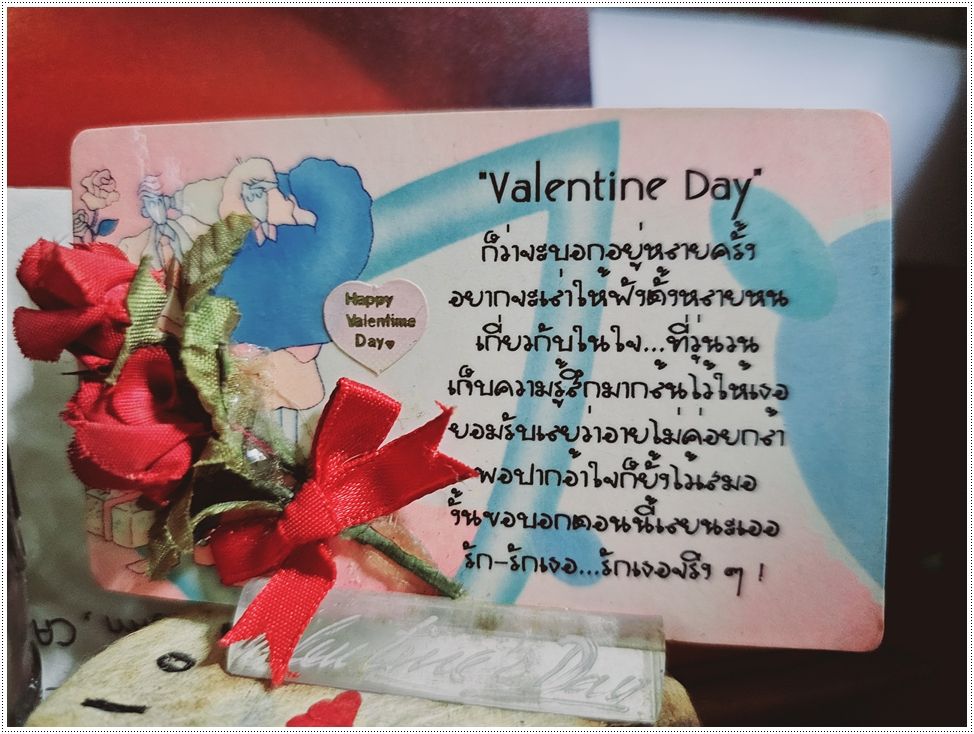 "Valentine Day"
ก็ว่าจะบอกอยู่หลายครั้ง
อยากจะเล่าให้ฟังตั้งหลายหน
เกี่ยวกับในใจ...ที่วุ่นวน
เก็บความรู้สึกมากล้นไว้ให้เธอ
ยอมรับเลยว่าอายไม่ค่อยกล้า
พอปากอ้าใจก็ยั้งไว้เสมอ
งั้นขอบอกตอนนี้เลยนะเออ
รัก-รักเธอ...รักเธอจริง ๆ !
Happy
Valentine
Day♥
Valentine's Day